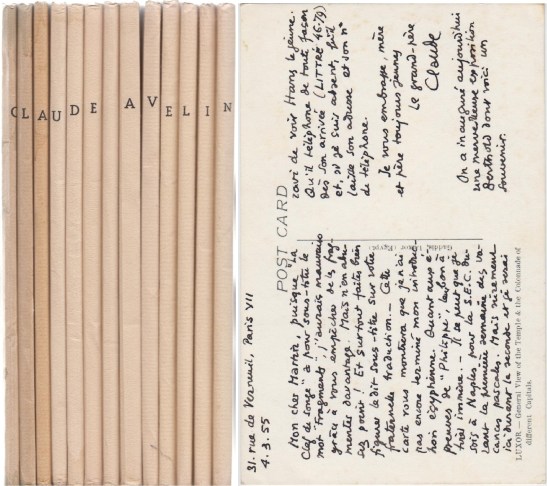 CLAUDE AVELIN
31. rue de Verneuil, Paris VII
4.3.55
Mon cher Martin, puisque "La
Clef de Songe" a pour sous-titre le
mot "fragments", j'aurais mauvaise
grâce à vous empêcher de la frag-
menter davantage. Mais n'en abu-
sez point! Et surtout faites bien
figurer le dit sous-titre sur votre
fraternelle traduction. — Cette
carte vous montrera que je n'ai
pas encore terminé mon
égyptienne. Quant aux é-
preuves de "Philippe", le bon à
— Il se peut que je
sois à Naples pour la S.E.C. du-
rant la première semaine des va-
cances pascales. Mais sûrement
ici durant la seconde et je serai
LUXOR – General View of the Temple & the Colonnade of
different Capitals.
POST CARD
Gaddis, Luxor (Egypt)
ravi de voir Hans le jeune.
Qu'il téléphone de toute façon
dès son arrivée (LITTRÉ 46.79)
et, si je suis absent, qu'il
laisse son adresse et son n°
de téléphone.
Je vous embrasse, mère
et père toujours jeunes
Le grand-père
Claude
On a inauguré aujourd'hui
une merveilleuse exposition
Berthold dont voici un
souvenir.